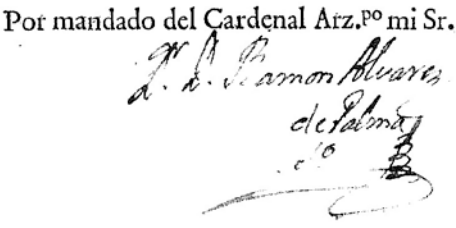 Por mandado del Cardenal Arz.ᵖᵒ mi Sr.
Dr. D. Ramon Alvarez
de Palma